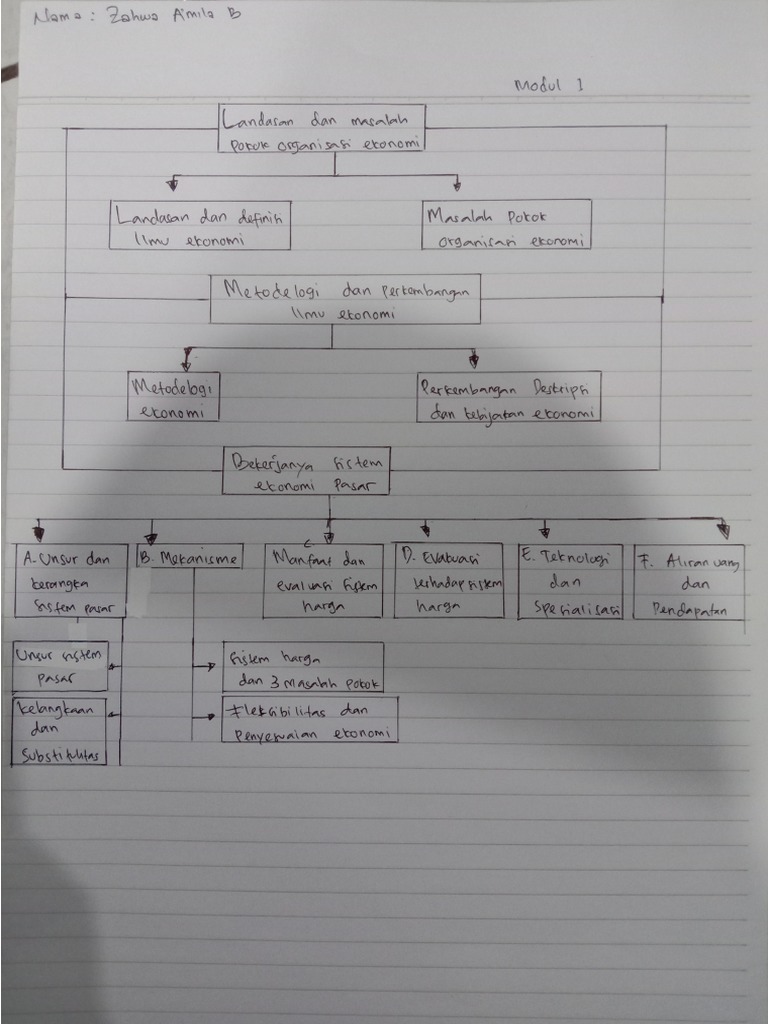 Nama : Zahwa A'mila B
Modul 1
Landasan dan masalah
pokok organisasi ekonomi
Landasan dan definisi
Ilmu ekonomi
Masalah Pokok
organisasi ekonomi
Metodelogi dan perkembangan
Ilmu ekonomi
Metodelogi
ekonomi
Perkembangan Deskripsi
dan kebijakan ekonomi
Bekerjanya sistem
ekonomi pasar
A. Unsur dan
kerangka
sistem pasar
B. Mekanisme
C.
Manfaat dan
evaluasi sistem
harga
D. Evaluasi
terhadap sistem
harga
E. Teknologi
dan
Spesialisasi
F. Aliran uang
dan
Pendapatan
Unsur sistem
pasar
Kelangkaan
dan
Substitutas
Sistem harga
dan 3 Masalah pokok
Fleksibilitas dan
penyesuaian ekonomi